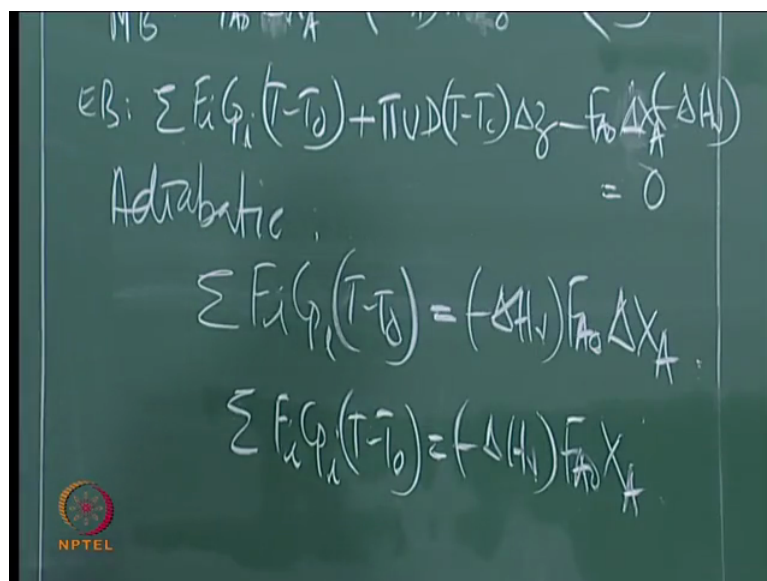 MB
EB: Σ Fi Cpi (T-T0) + πUD(T-Tc) Δz - FA0 ΔXA (-ΔHr)
= 0
Adiabatic:
Σ Fi Cpi (T-T0) = (-ΔHr) FA0 ΔXA.
Σ Fi Cpi (T-T0) = (-ΔHr) FA0 XA
NPTEL